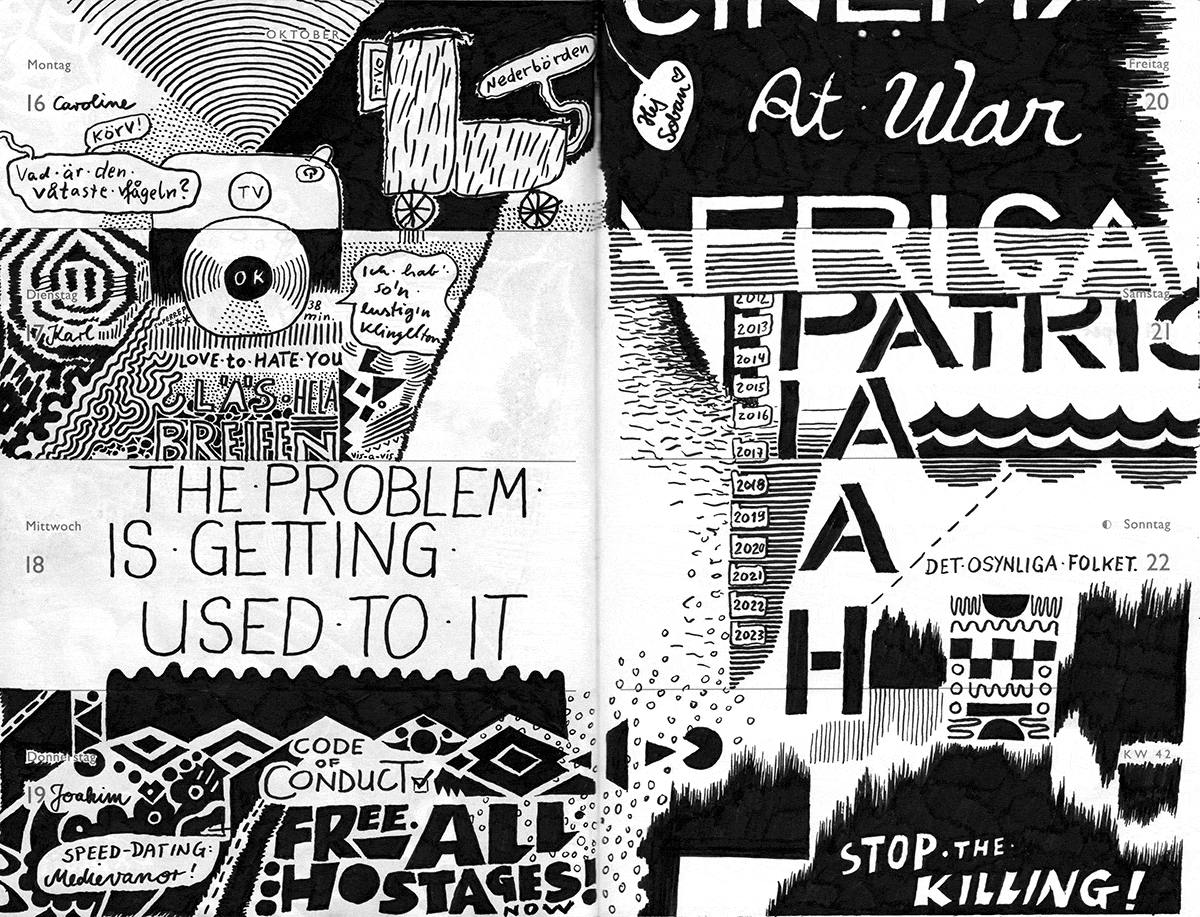 OKTOBER
Montag
16 Caroline
Körv!
Vad·är·den·
våtaste·fågeln?
TIVO
Nederbörden
TV
OK
38
min.
Ich·hab'·
so'n·
lustig'n
Klingelton
Dienstag
17 Karl
LOVE·to·HATE·YOU
LÄS·HELA
BREFEN
vis-a-vis
THE·PROBLEM·
IS·GETTING·
USED·TO·IT
Mittwoch
18
Donnerstag
19 Joakim
SPEED-DATING:
Medievanor!
CODE
OF
CONDUCT
FREE·ALL
HOSTAGES!
NOW
CINEMA
Hej
Sobran
At·War
Freitag
20
AFRICA
Samstag
21
PATRIC
IA
A
H
2012
2013
2014
2015
2016
2017
2018
2019
2020
2021
2022
2023
Sonntag
DET·OSYNLIGA·FOLKET. 22
KW 42
STOP·THE·
KILLING!